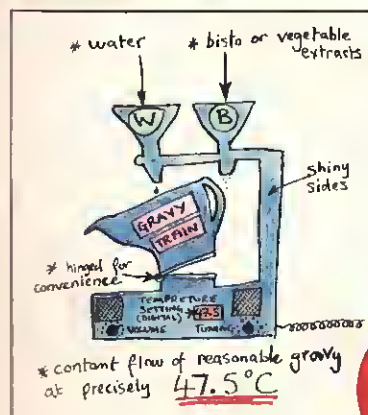 * water
* bisto or vegetable
extracts
W
B
shiny
sides
GRAVY
TRAIN
* hinged for
convenience
TEMPRETURE
SETTING
(DIGITAL)
* 47.5
VOLUME
TUNING
* contant flow of reasonable gravy
at precisely 47.5°C